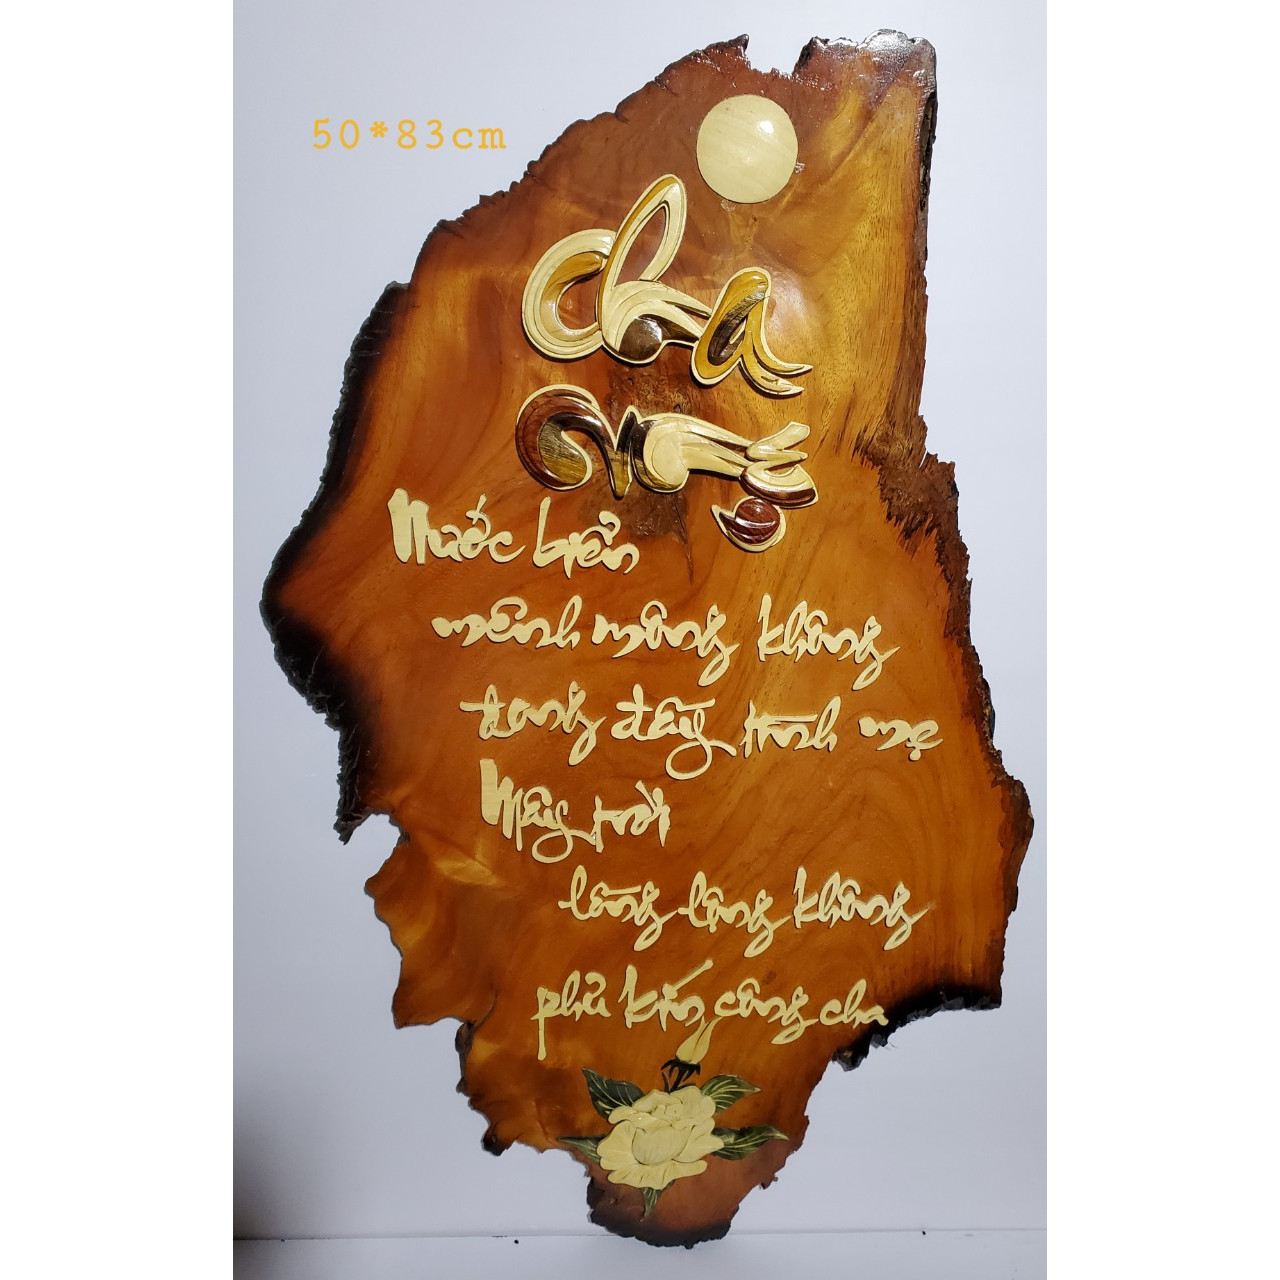 50*83cm
Cha
Mẹ
Nước biển
mênh mông không
đong đầy tình mẹ
Mây trời
lồng lộng không
phủ kín công cha